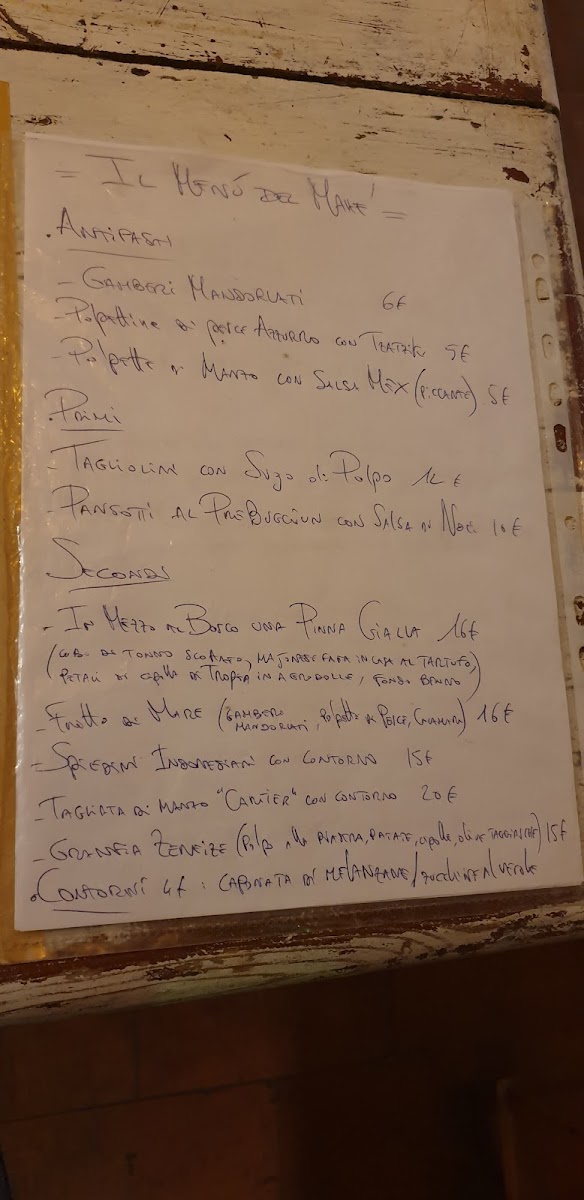 = IL MENÚ DEL MARÉ =
. ANTIPASTI
- GAMBERI MANDORLATI 6€
- Polpettine di pesce AZZURRO CON TZATZIKI 5€
- Polpette di MANZO CON SALSA MEX (PICCANTE) 5€
. PRIMI
- TAGLIOLINI CON SUGO di Polpo 12 €
- PANSOTTI AL PREBUGGIUN CON SALSA DI NOCI 10€
SECONDI
- IN MEZZO AL BOSCO UNA PINNA GIALLA 16€
(CUBI DI TONNO SCOTTATO, MAJONESE FATTA IN CASA AL TARTUFO,
PETALI DI cipolla DI TROPEA IN AGRODOLCE, FONDO BRUNO)
- Fritto DI MARE (GAMBERI MANDORLATI, Polpette di PESCE, CALAMARI) 16€
- SPIEDINI INDONESIANI CON CONTORNO 15€
- TAGLIATA DI MANZO "CARTIER" CON CONTORNO 20€
- ZENEIZE (Polpo alla PIASTRA, PATATE, cipolle, olive TAGGIASCHE) 15€
. CONTORNI 4€ : CAPONATA DI MELANZANE / ZUCCHINE AL VERDE